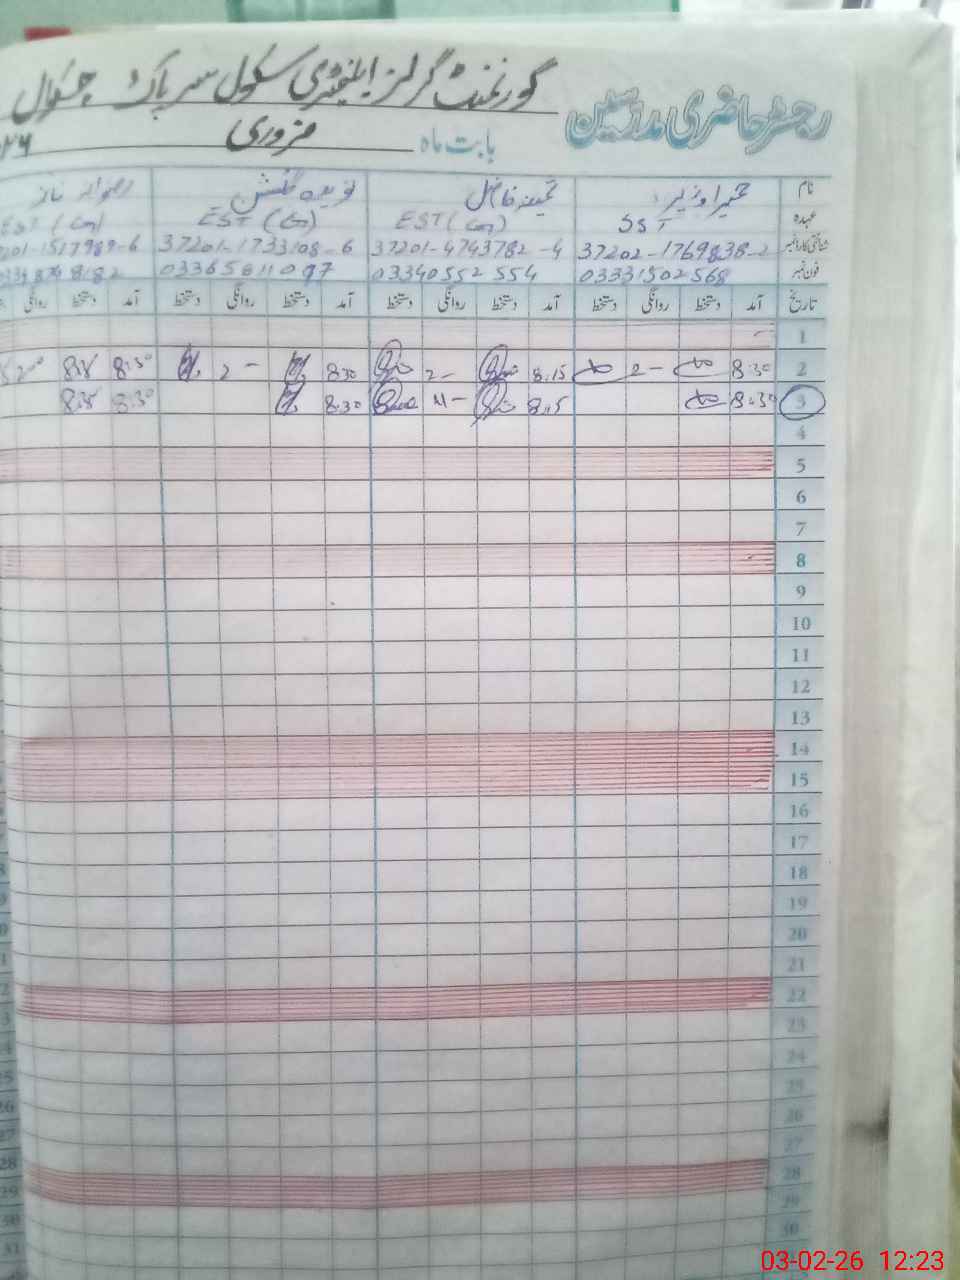 گورنمنٹ گرلز ایلیمنٹری سکول سرپاک چکوال
رجسٹر حاضری مدرسین
بابت ماہ فروری ۲۶
نام حمیرا وزیر ثمینہ فاضل نویدہ گلشن رضوانہ ناز
عہدہ SST EST (Gn) EST (Gn) EST (Gn)
شناختی کارڈ نمبر 37202-1769838-2 37201-4743782-4 37201-1733108-6 7201-1517989-6
فون نمبر 03331502568 03340552554 03365811097
تاریخ آمد دستخط روانگی دستخط آمد دستخط روانگی دستخط آمد دستخط روانگی دستخط آمد دستخط روانگی
1
2 8:30 2- 8:15 2- 8:30 2- 8:30
3 8:30 8:15 11- 8:30 8:30
4
5
6
7
8
9
10
11
12
13
14
15
16
17
18
19
20
21
22
23
24
25
26
27
28
29
30
03-02-26 12:23